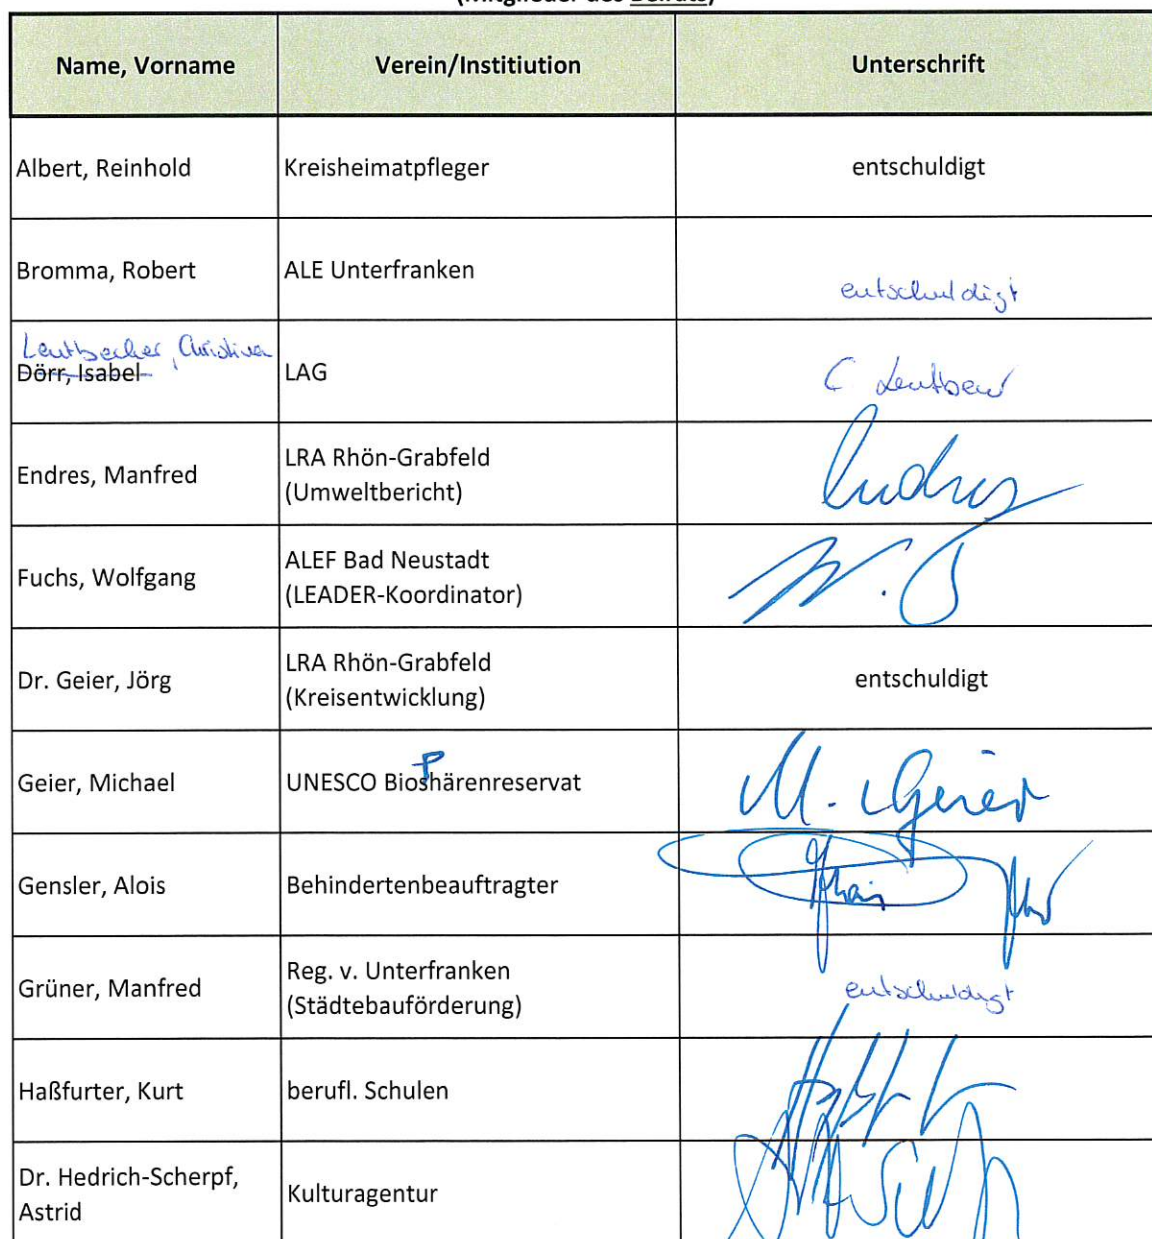 (Mitglieder des Beirats)
Name, Vorname Verein/Institiution Unterschrift
Albert, Reinhold Kreisheimatpfleger entschuldigt
Bromma, Robert ALE Unterfranken entschuldigt
Leutbecher, Christina
Dörr, Isabel LAG C Leutbecher
Endres, Manfred LRA Rhön-Grabfeld
(Umweltbericht) Endres
Fuchs, Wolfgang ALEF Bad Neustadt
(LEADER-Koordinator)
Dr. Geier, Jörg LRA Rhön-Grabfeld
(Kreisentwicklung) entschuldigt
p
Geier, Michael UNESCO Bioshärenreservat M. Geier
Gensler, Alois Behindertenbeauftragter
Grüner, Manfred Reg. v. Unterfranken
(Städtebauförderung) entschuldigt
Haßfurter, Kurt berufl. Schulen
Dr. Hedrich-Scherpf,
Astrid Kulturagentur